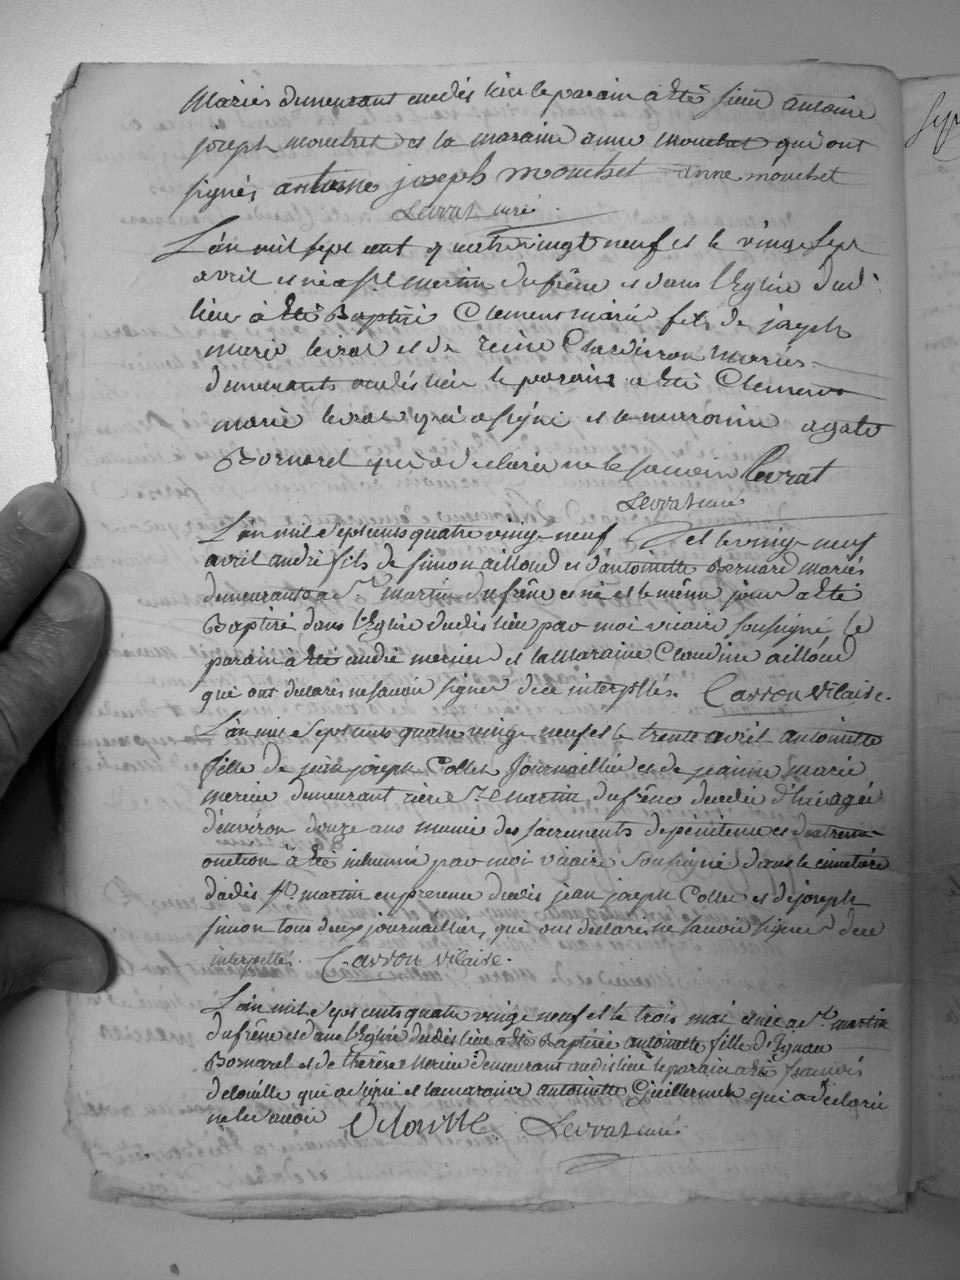 Mariés demeurant audit lieu le parain a été sieur antoine
joseph mouchet et la maraine anne mouchet qui ont
signés antoine joseph mouchet anne mouchet
Levrat curé
L'an mil sept cent quatrevingt neuf et le vingt sept
avril est né a St martin du frêne et dans l'Eglise dudi
lieu à été Baptisé Clement marie fils de joseph
marie levrat et de reine mariés
demeurants audit lieu le parain a été Clement
marie levrat qui a signé et la maraine agate
Bornarel qui a declaré ne le savoir Levrat
Levrat curé
L'an mil sept cents quatre vingt neuf et le vingt neuf
avril andré fils de simonailloud et d'antoinette Bernard mariés
demeurants a St martin du frêne est né et le même jour a été
Baptisé dans l'Eglise dudit lieu par moi vicaire soussigné le
parain a été andré mercier et la Maraine Claudine ailloud
qui ont declarés ne savoir signer de ce interpellés. Carron vicaire.
L'an mil sept cents quatre vingt neuf et le trente avril antoinette
fille de jean joseph Collet journaillier et de jeanne marie
mercier demeurant rière St martin du frêne decedée d'hier agée
d'environ douze ans munie des sacrements de pénitence et d'extreme
onction à été inhumée par moi vicaire soussigné dans le cimetière
dudit St. martin en presence dudit jean joseph Collet et de joseph
simon tous deux journaillier, qui ont declarés ne savoir signer de ce
interpellés. Carron vicaire.
L'an mil sept cents quatre vingt neuf et le trois mai est née a St. martin
du frêne et dans l'Eglise dudit lieu a été Baptisée antoinette fille d'
Bornarel et de thérèse Mercier demeurant audit lieu le parain a été francois
delouille qui a signé et la maraine antoinette Guillermet qui a declaré
ne le savoir Delouille Levrat curé